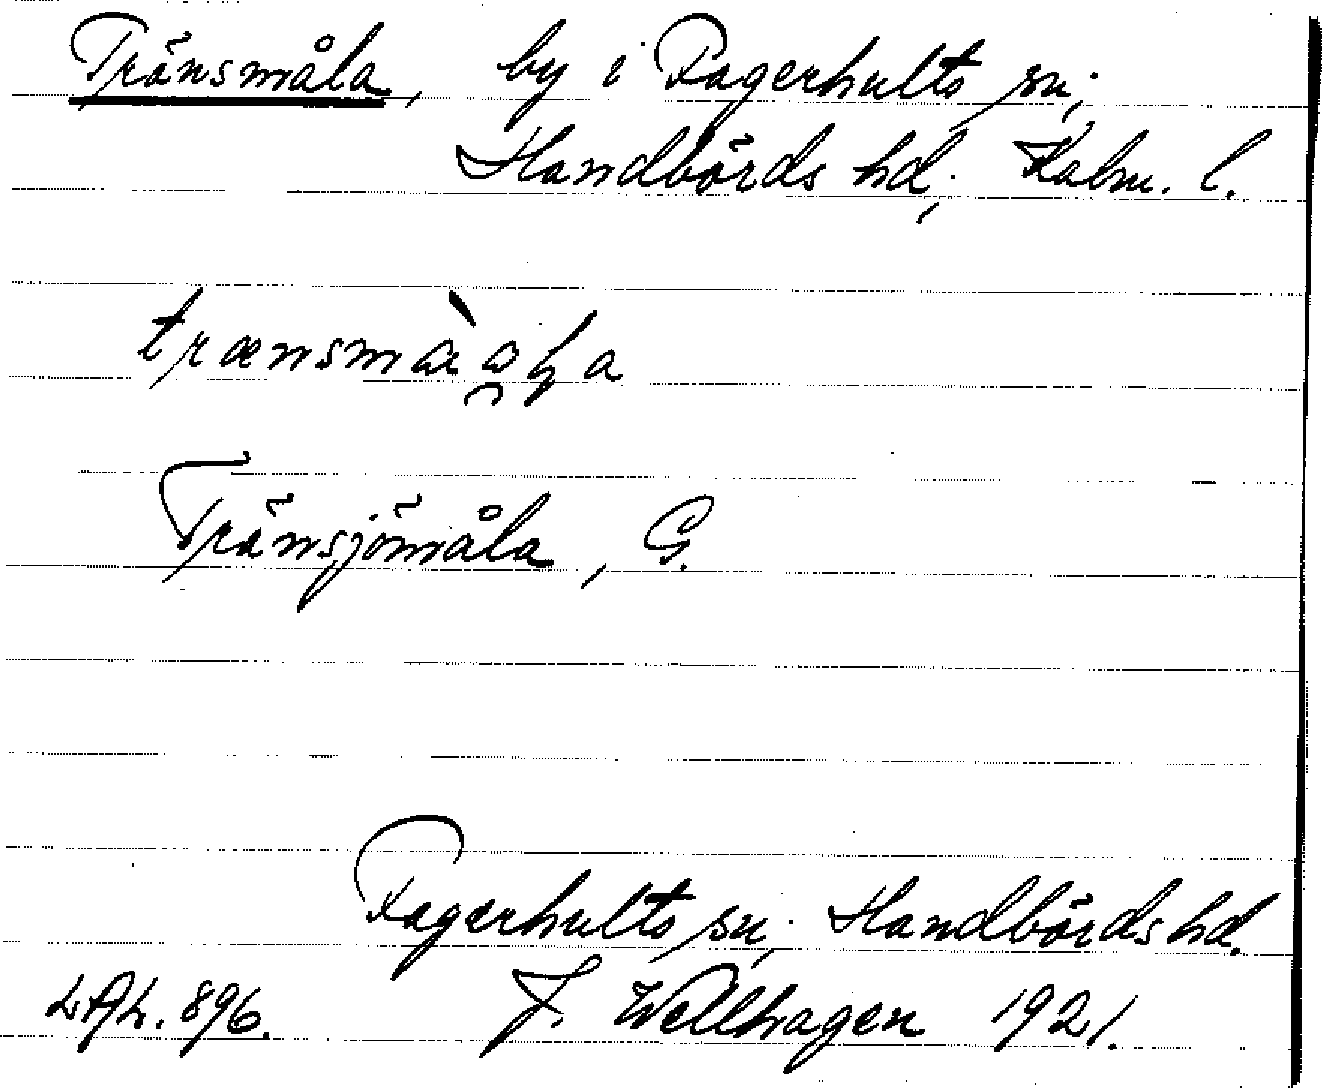 Tränsmåla, by i Fagerhults sn;
Handbörds hd; Kalm. l.
trænsmàɑ̯ɫa
Tränsjömåla, G.
Fagerhults sn; Handbörds hd.
LAL. 896. J. Wellhagen 1921.